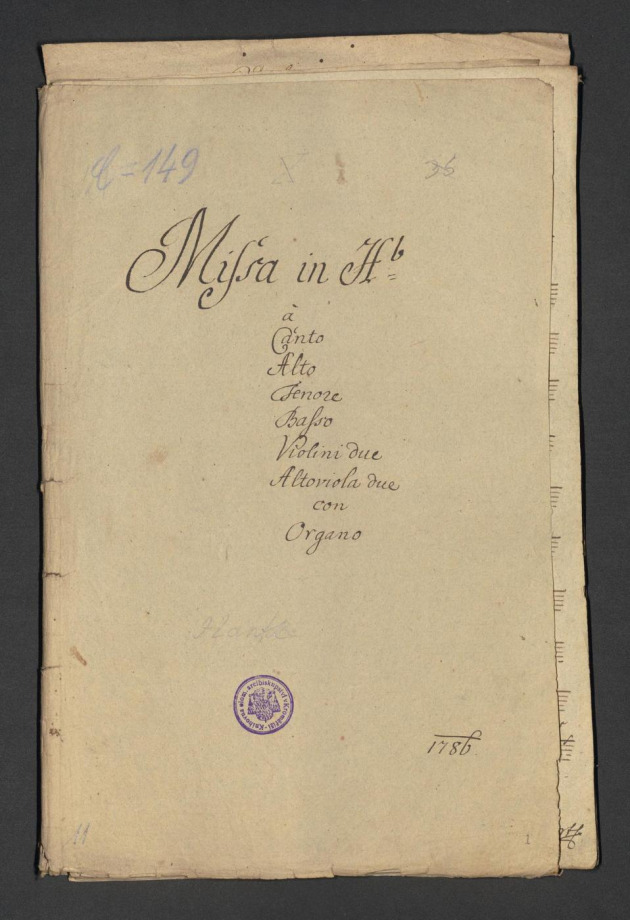 A=149
X
36
Missa in H♭
à
Canto
Alto
Tenore
Basso
Violini due
Altoviola due
con
Organo
1786
11
1